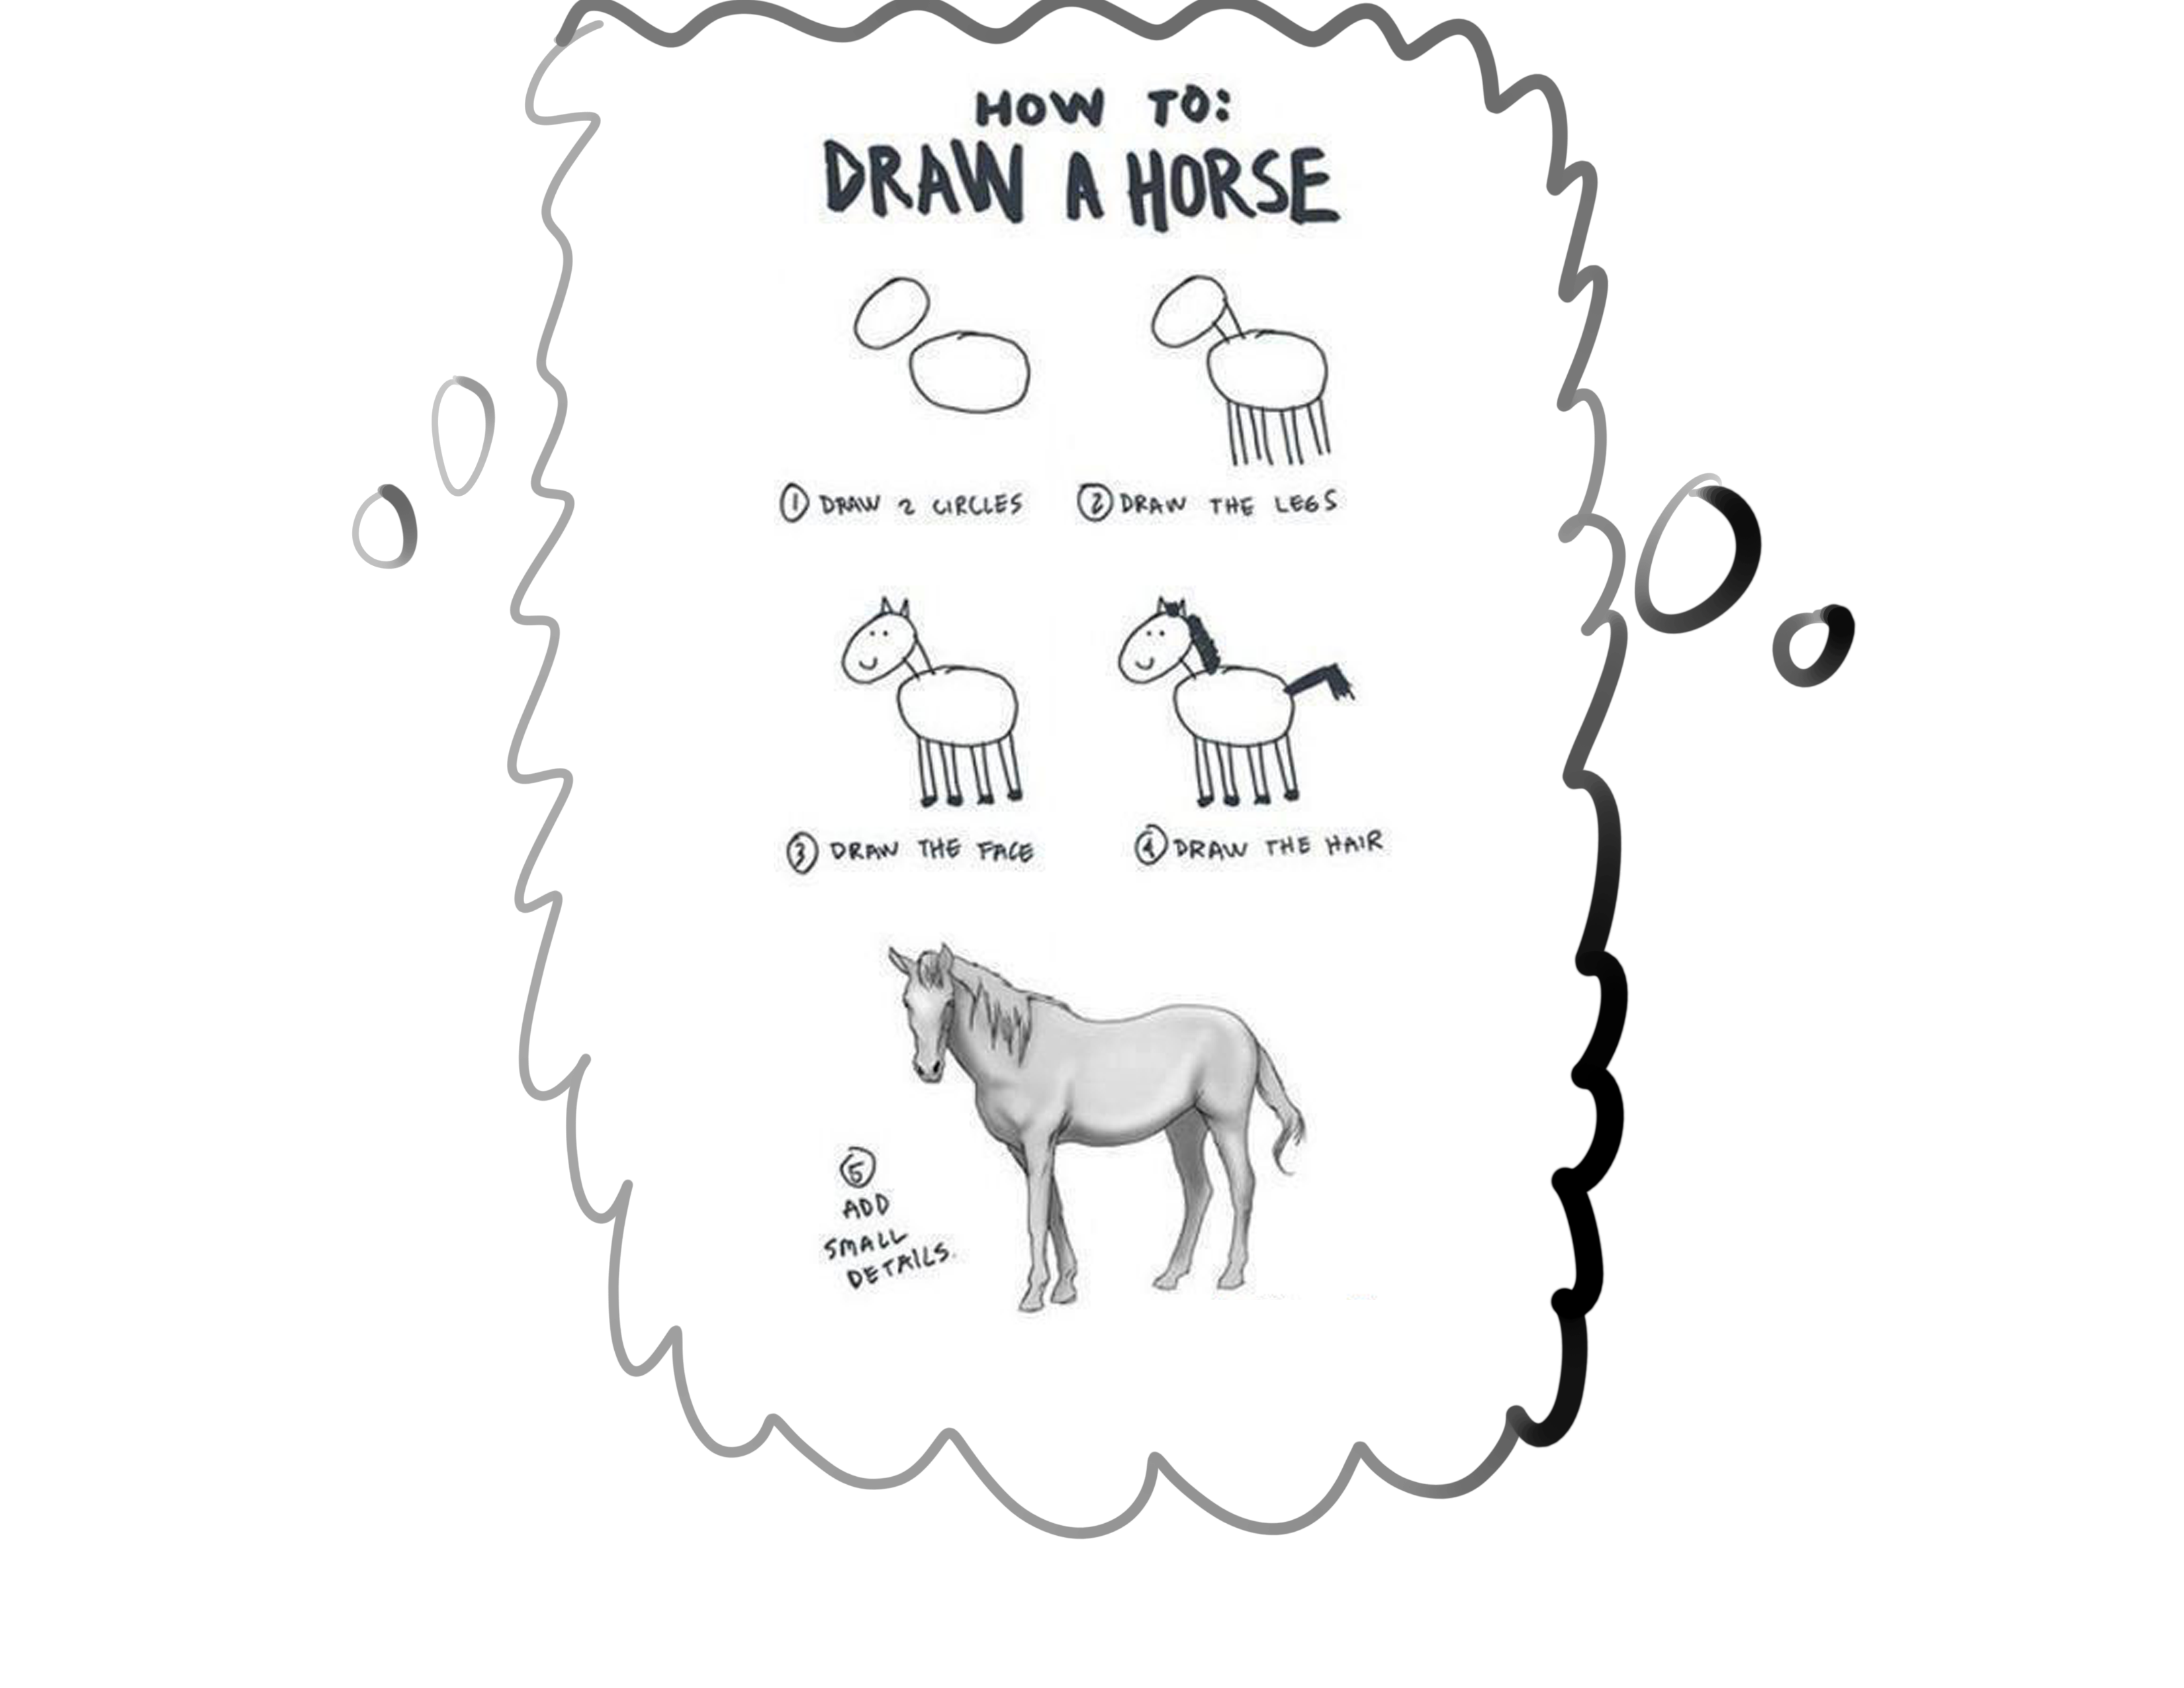 HOW TO:
DRAW A HORSE
① DRAW 2 CIRCLES
② DRAW THE LEGS
③ DRAW THE FACE
④ DRAW THE HAIR
⑤
ADD
SMALL
DETAILS.